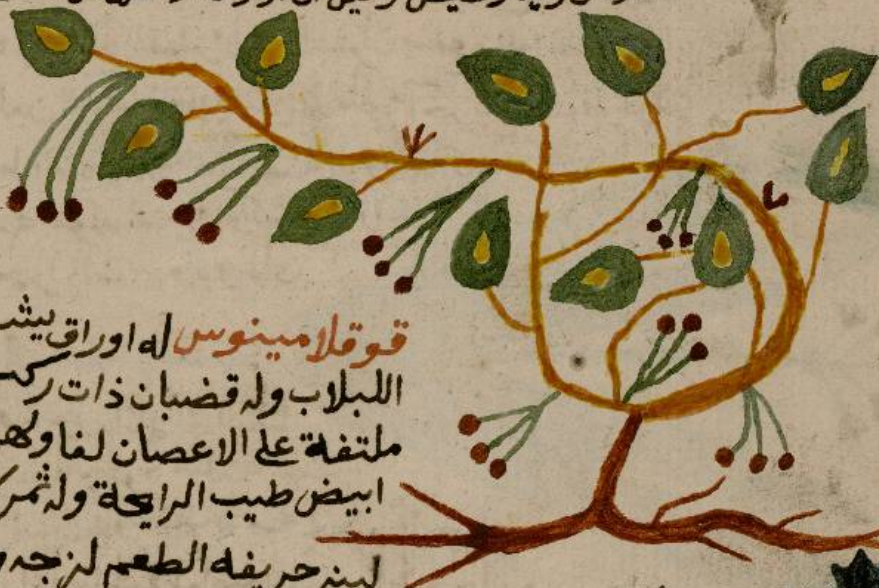 قوقلامينوس له اوراق
اللبلاب وله قضبان ذات
ملتفة على الاعصان لفا
ابيض طيب الرايحة وله ثمر
لينه حريفه الطعم لزجه